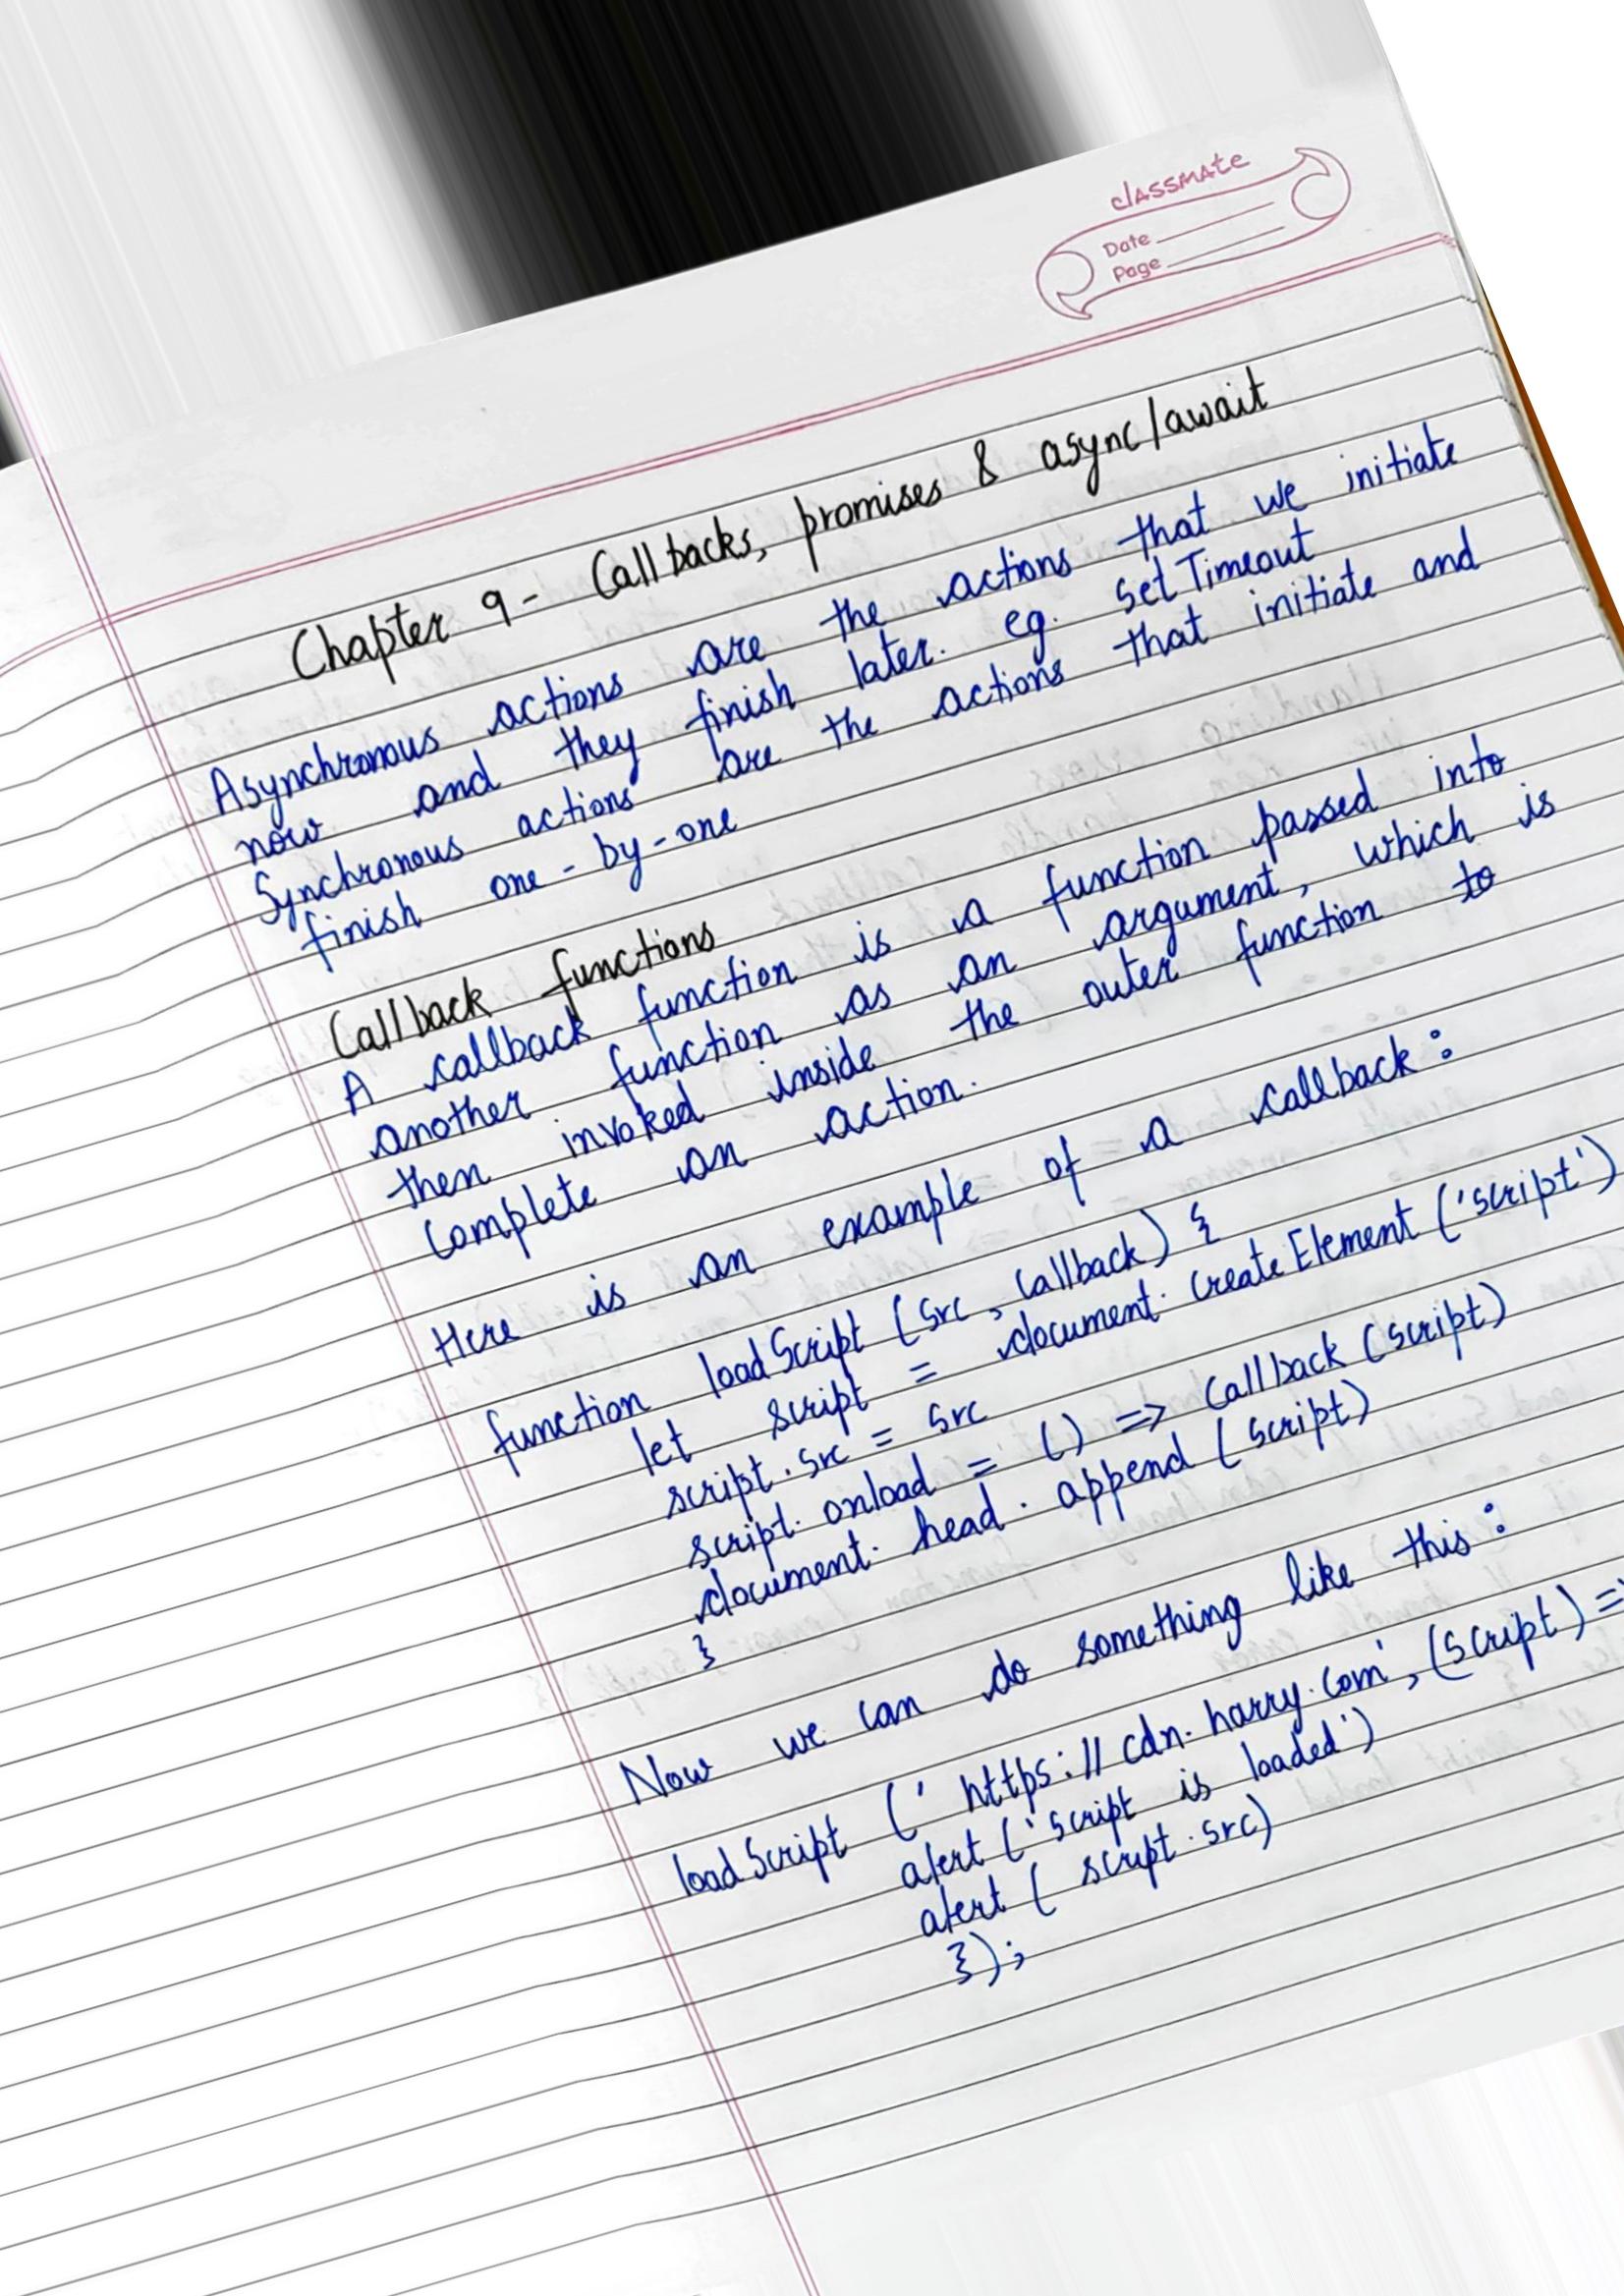 classmate
Date
Page
Chapter 9 - Callbacks, promises & async/await
Asynchronous actions are the actions that we initiate
now and they finish later. eg. setTimeout
Synchronous actions are the actions that initiate and
finish one-by-one
Callback functions
A callback function is a function passed into
another function as an argument, which is
then invoked inside the outer function to
complete an action.
Here is an example of a callback :
function loadScript (src, callback) {
let script = document. createElement ('script')
script.src = src
script. onload = () => callback (script)
document. head. append (script)
}
Now we can do something like this :
loadScript ('https://cdn.harry.com', (script) =>
alert ('script is loaded')
alert ( script.src)
});